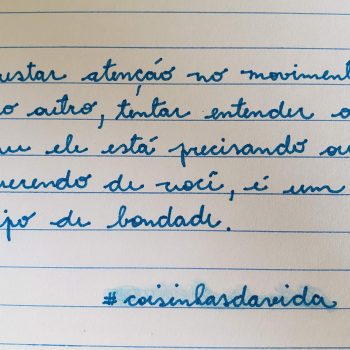 restar atenção no moviment
o outro, tentar entender o
ue ele está precisando ou
uerendo de você, é um
ipo de bondade.
#coisinhasdavida